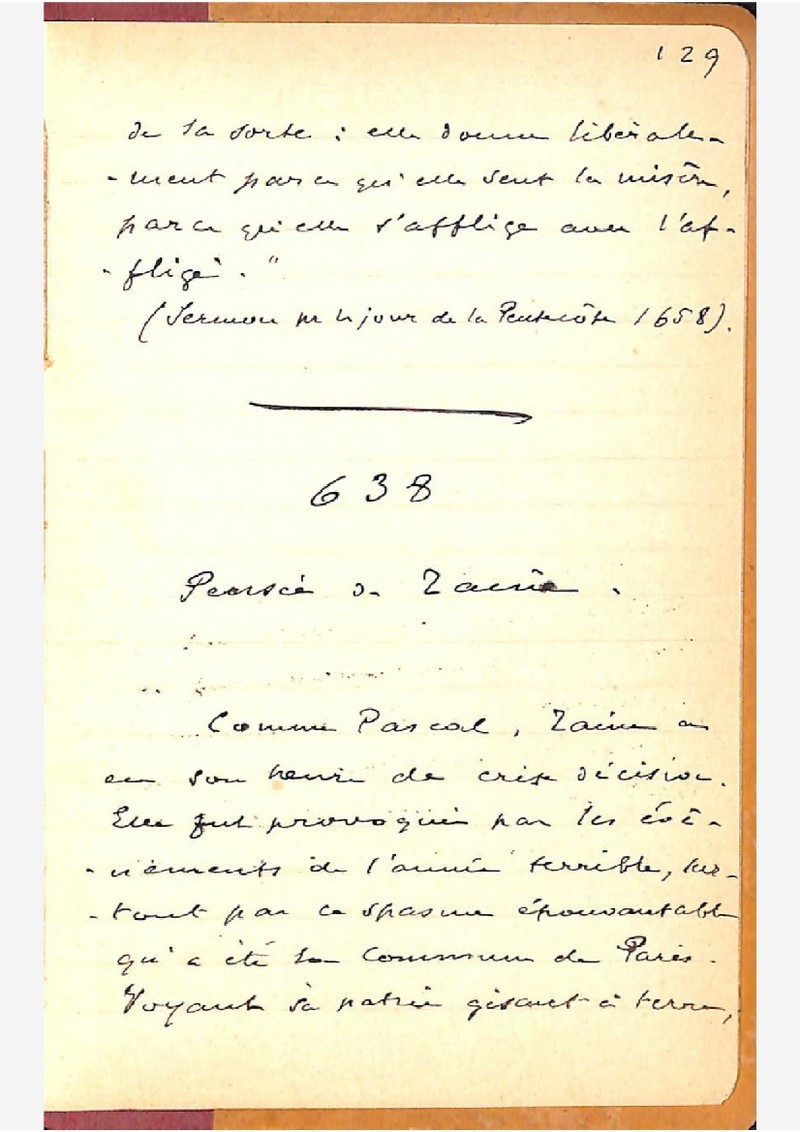 129
de la sorte : elle donne libérale-
-ment parce qu'elle sent la misère,
parce qu'elle s'afflige avec l'af-
-fligé. "
(Sermon pr le jour de la Pentecôte 1658).
638
Pensée de Taine.
Comme Pascal, Taine a
eu son heure de crise décisive.
Elle fut provoquée par les évè-
-nements de l'année terrible, sur-
-tout par ce spasme épouvantable
qu'a été la Commune de Paris.
Voyant sa patrie gisant à terre,